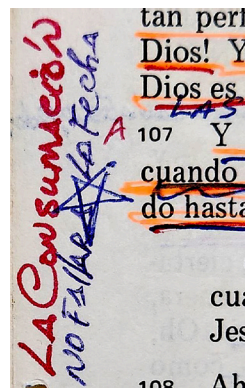 LA CONSUMACIÓN
NO FALLARA LA FECHA
tan perf
Dios! Y
Dios es
LAS
A
107 Y
cuando
do hasta
cua
Jes
108 Ah